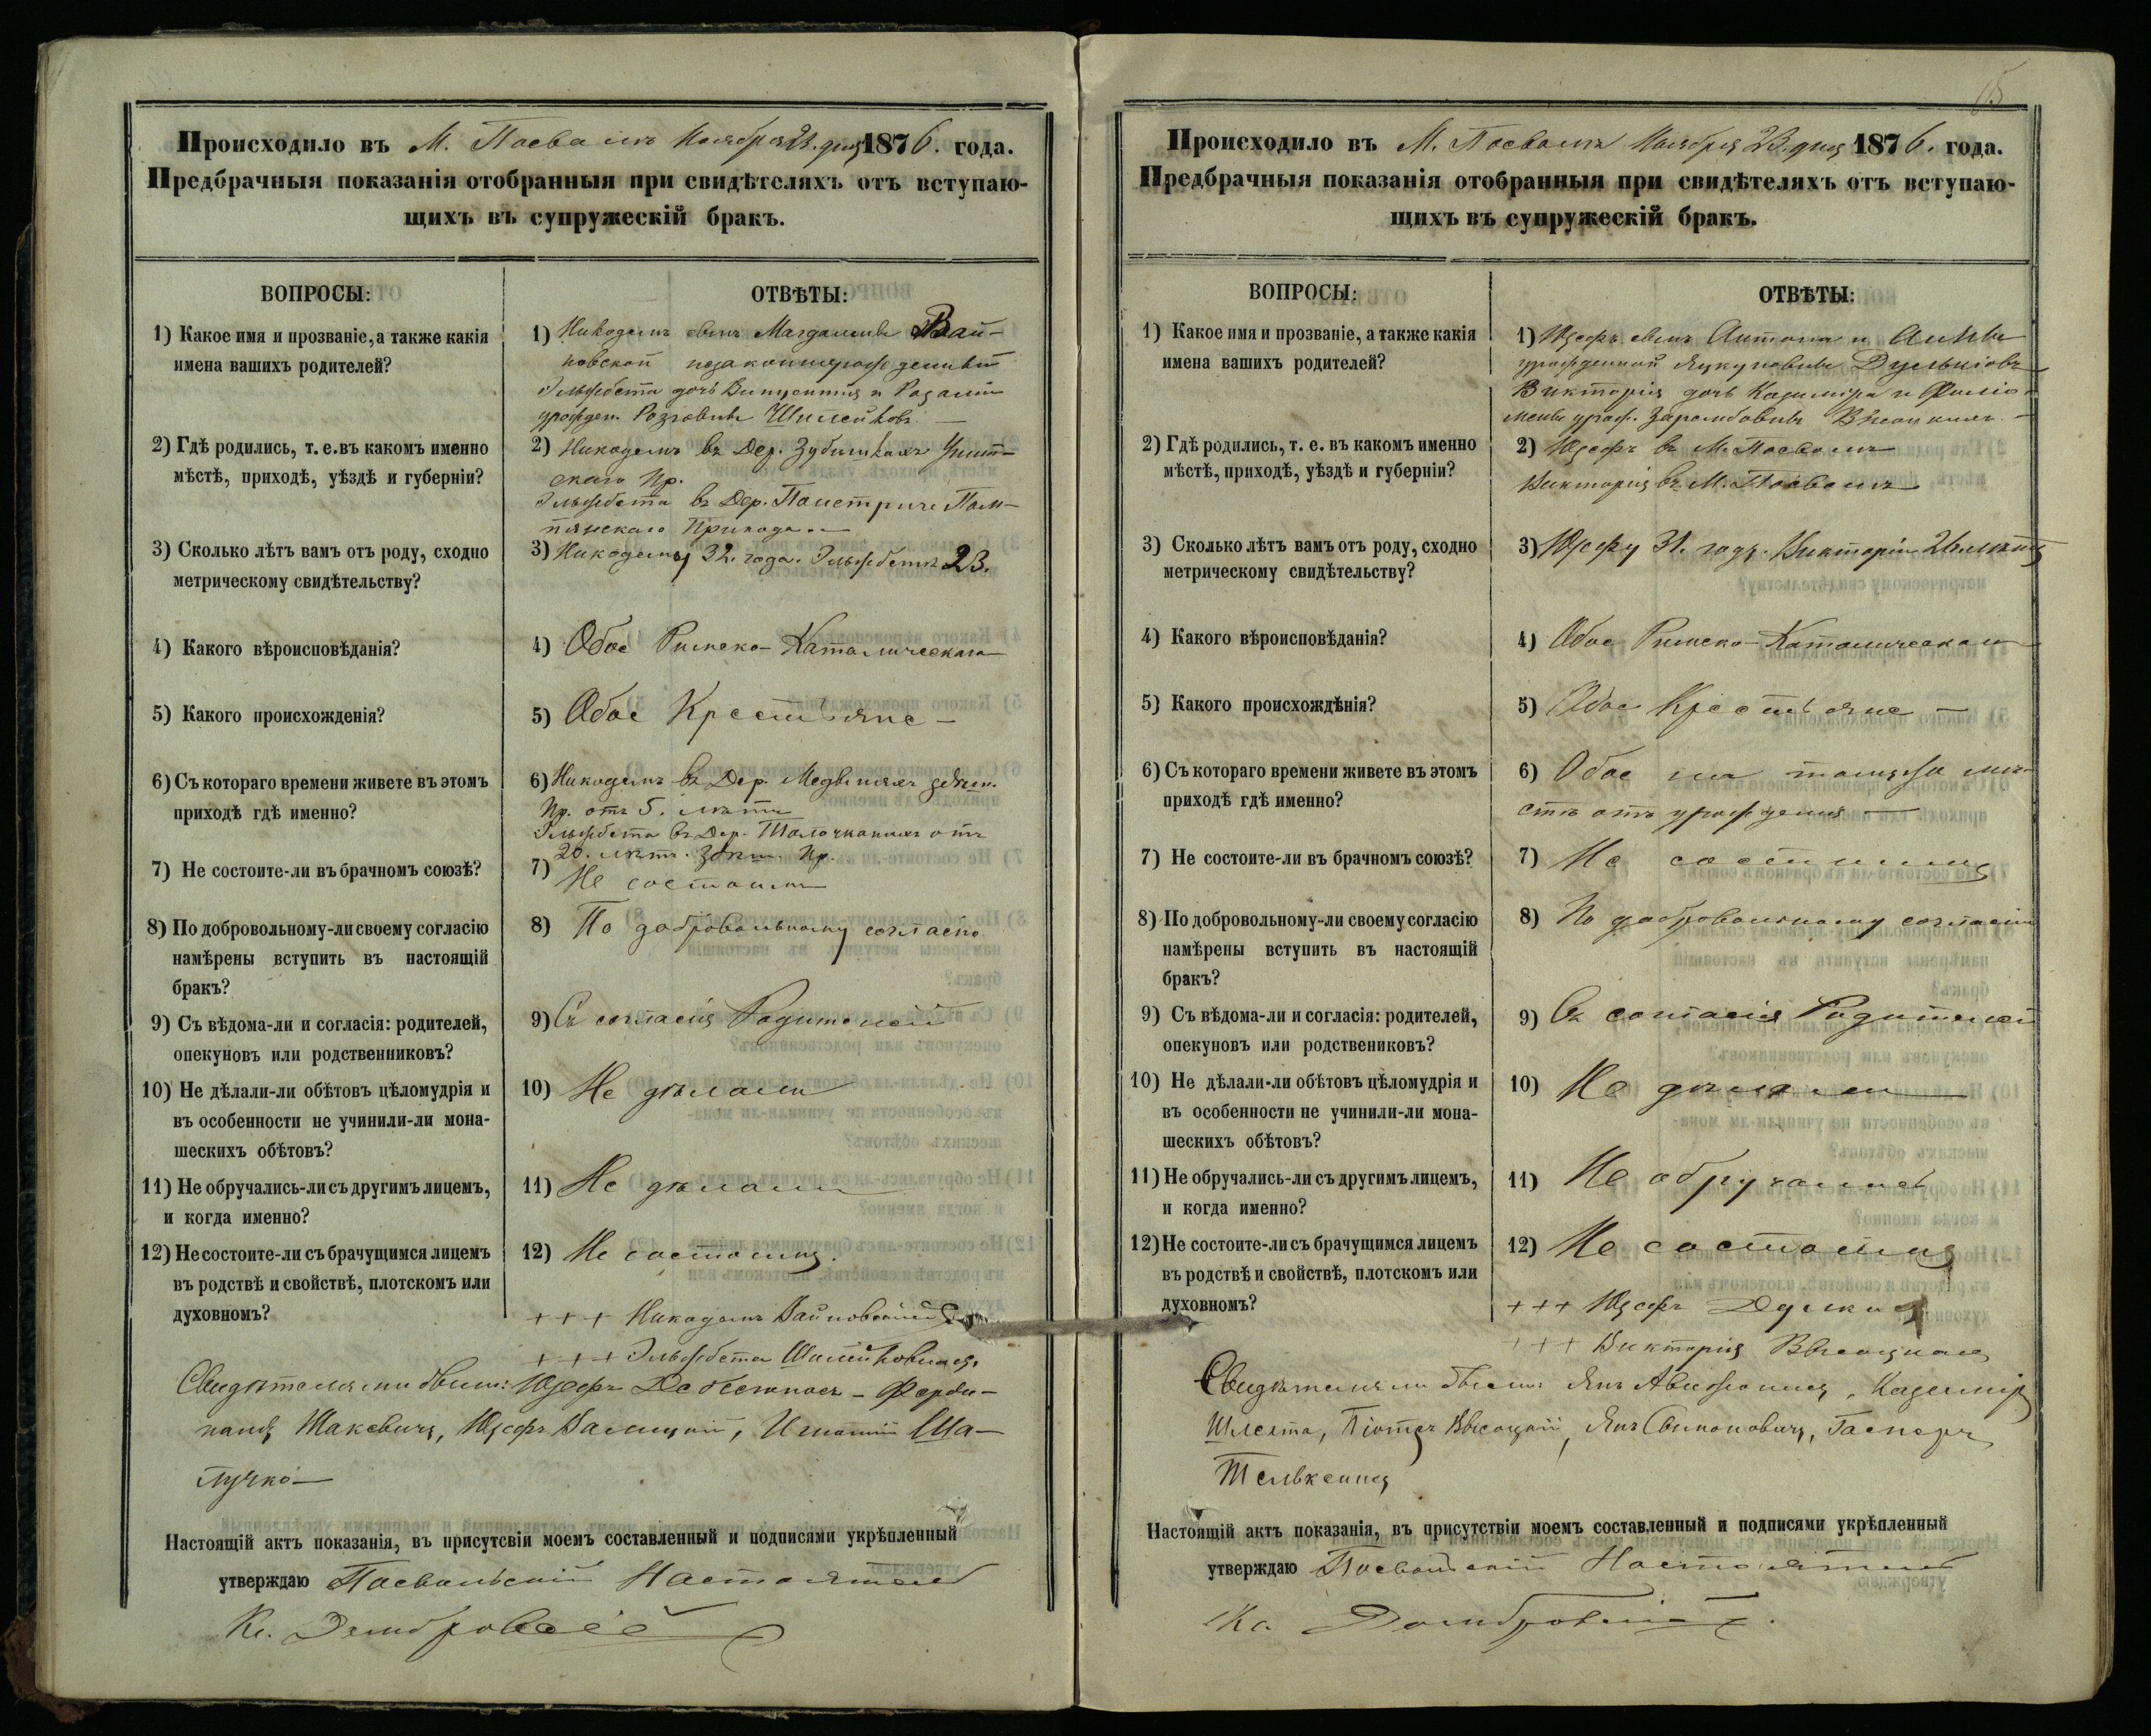 Происходило въ М. Посволь Ноября 21. дня 1876. года.
Предбрачныя показанія отобранныя при свидѣтеляхъ отъ вступаю-
щихъ въ супружескій бракъ.
ВОПРОСЫ:
ОТВѢТЫ:
1) Какое имя и прозваніе, а также какія
имена вашихъ родителей?
1) Никодемъ сынъ Магдалены Вай-
новской незаконнорожденный
Эльжбета дочь Винцентія и Розаліи
урожден. Шилейковъ. —
2) Гдѣ родились, т. е. въ какомъ именно
мѣстѣ, приходѣ, уѣздѣ и губерніи?
2) Никодемъ въ Дер. Зубишкахъ
скаго Пр.
Эльжбета въ Дер. Поистричи Пом-
пянскаго Прихода. —
3) Сколько лѣтъ вамъ отъ роду, сходно
метрическому свидѣтельству?
3) Никодему 32. года. Эльжбетѣ 23.
4) Какого вѣроисповѣданія?
4) Обое Римско-Католическаго
5) Какого происхожденія?
5) Обое Крестьяне —
6) Съ котораго времени живете въ этомъ
приходѣ гдѣ именно?
6) Никодемъ въ Дер. здѣш.
Пр. отъ 5. лѣтъ
Эльжбета въ Дер. отъ
20. лѣтъ. здѣш. Пр.
7) Не состоите-ли въ брачномъ союзѣ?
7) Не состоимъ
8) По добровольному-ли своему согласію
намѣрены вступить въ настоящій
бракъ?
8) По добровольному согласію
9) Съ вѣдома-ли и согласія: родителей,
опекуновъ или родственниковъ?
9) Съ согласія Родителей
10) Не дѣлали-ли обѣтовъ цѣломудрія и
въ особенности не учинили-ли мона-
шескихъ обѣтовъ?
10) Не дѣлали
11) Не обручались-ли съ другимъ лицемъ,
и когда именно?
11) Не дѣлали
12) Не состоите-ли съ брачущимся лицемъ
въ родствѣ и свойствѣ, плотскомъ или
духовномъ?
12) Не состоимъ.
+ + + Никодемъ Вайновскій
+ + + Эльжбета Шилейковна
Свидѣтелями были: Юзефъ — Ферди-
нандъ Жакевичъ, Юзефъ Игнатій Ша-
лучко —
Настоящій актъ показанія, въ присутсвіи моемъ составленный и подписями укрѣпленный
утверждаю Посвольскій Настоятель
Кс. Домбровскій
Происходило въ М. Посволь Ноября 23. дня 1876. года.
Предбрачныя показанія отобранныя при свидѣтеляхъ отъ вступаю-
щихъ въ супружескій бракъ.
ВОПРОСЫ:
ОТВѢТЫ:
1) Какое имя и прозваніе, а также какія
имена вашихъ родителей?
1) Юзефъ сынъ Антона и Анны
урожденной Дулькісовъ
Викторія дочь Казиміра и Фило-
мены урож. Зарембовны Высоцкихъ. —
2) Гдѣ родились, т. е. въ какомъ именно
мѣстѣ, приходѣ, уѣздѣ и губерніи?
2) Юзефъ въ М. Посволь
Викторія въ М. Посволь
3) Сколько лѣтъ вамъ отъ роду, сходно
метрическому свидѣтельству?
3) Юзефу 31. годъ. Викторіи 26 лѣтъ
4) Какого вѣроисповѣданія?
4) Обое Римско-Католическаго
5) Какого происхождѣнія?
5) Обое Крестьяне —
6) Съ котораго времени живете въ этомъ
приходѣ гдѣ именно?
6) Обое на томъ же мѣ-
стѣ отъ урожденія —
7) Не состоите-ли въ брачномъ союзѣ?
7) Не состоимъ
8) По добровольному-ли своему согласію
намѣрены вступить въ настоящій
бракъ?
8) По добровольному согласію
9) Съ вѣдома-ли и согласія: родителей,
опекуновъ или родствениковъ?
9) Съ согласія Родителей
10) Не дѣлали-ли обѣтовъ цѣломудрія и
въ особенности не учинили-ли мона-
шескихъ обѣтовъ?
10) Не дѣлали
11) Не обручались-ли съ другимъ лицемъ,
и когда именно?
11) Не обручались
12) Не состоите-ли съ брачущимся лицемъ
въ родствѣ и свойствѣ, плотскомъ или
духовномъ?
12) Не состоимъ
+ + + Юзефъ Дулкисъ
+ + + Викторія Высоцкая
Свидѣтелями были Янъ Казимиръ
Шлекта, Піотръ Высоцкій, Янъ Симоновичъ, Гасперъ
Настоящій актъ показанія, въ присутствіи моемъ составленный и подписями укрѣпленный
утверждаю Посвольскій Настоятель
Кс. Домбровскій